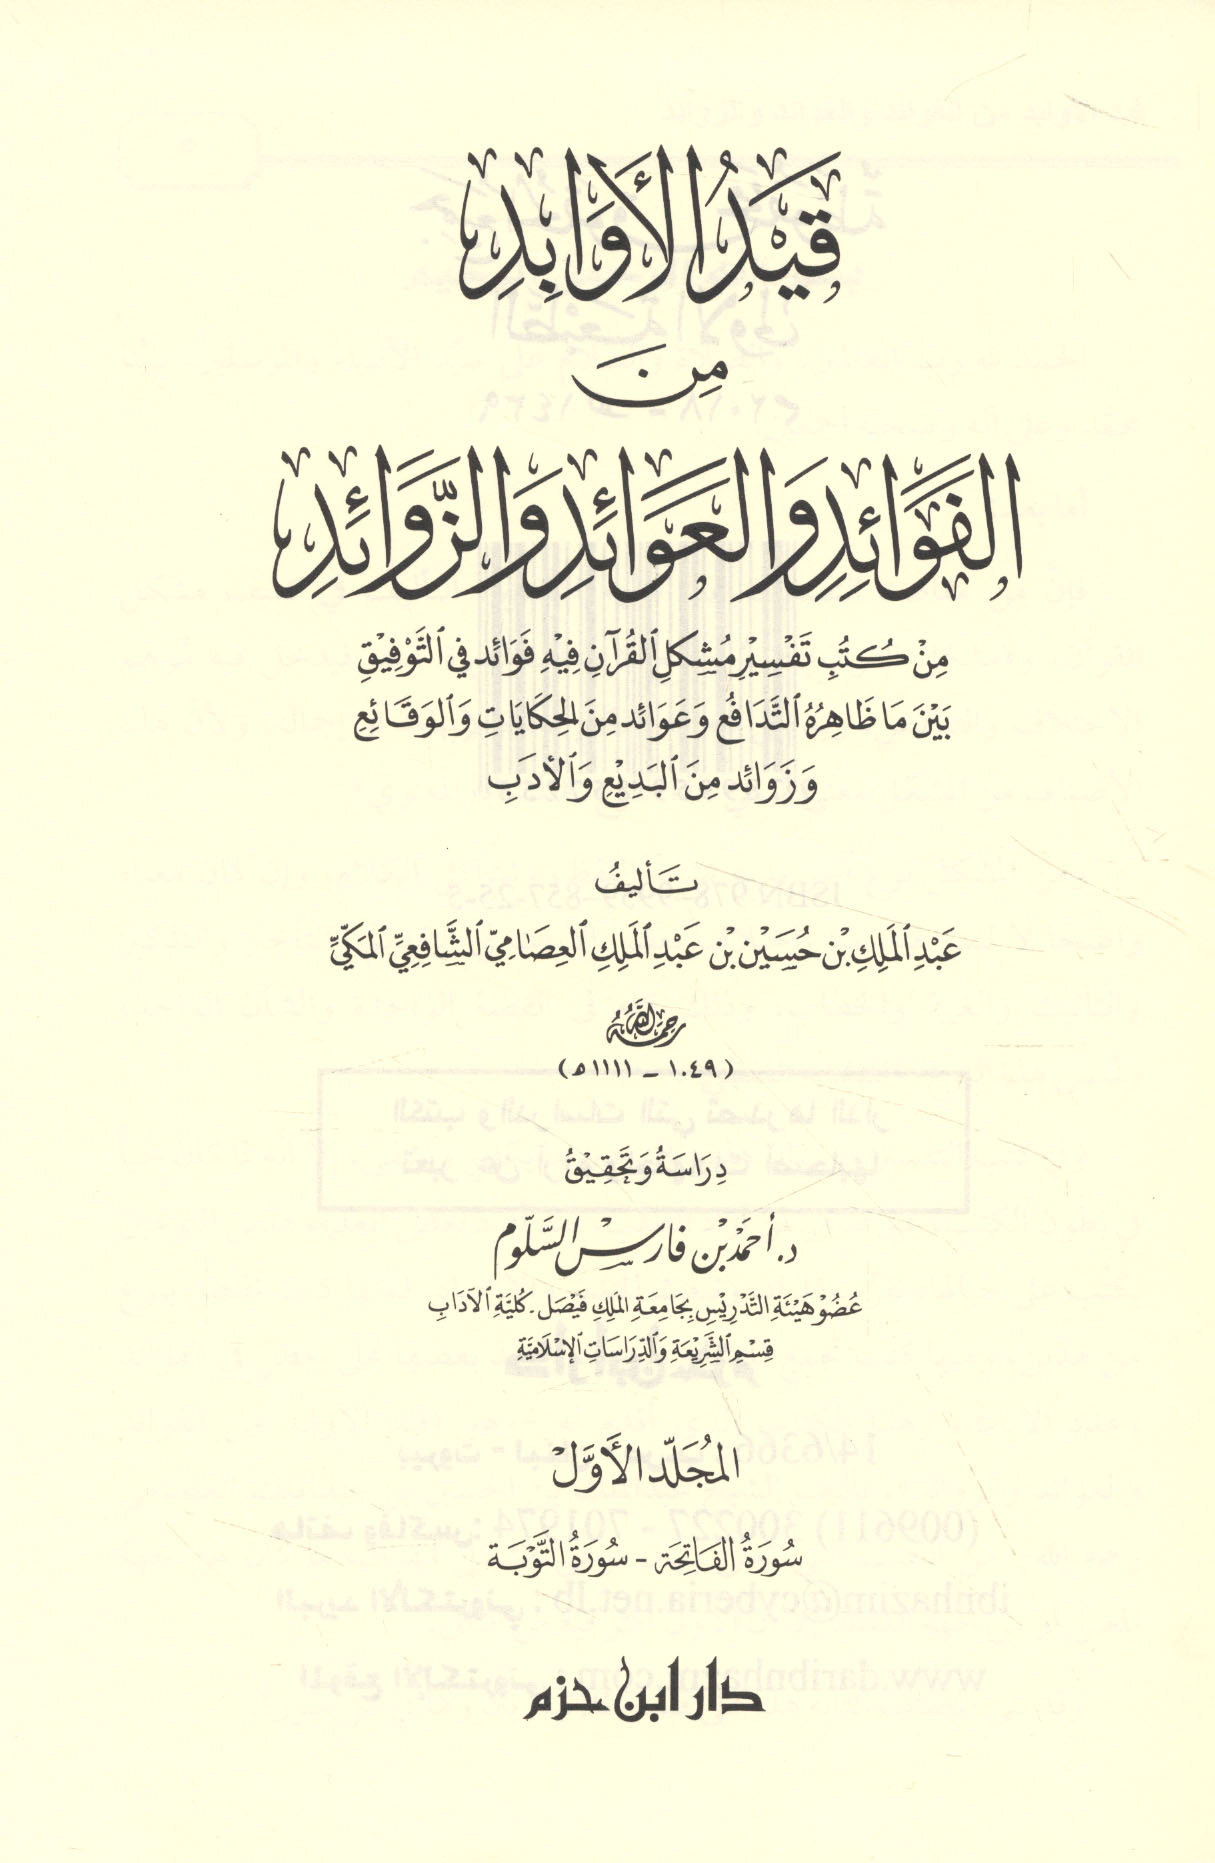 قَيْدُ الأَوَابِدِ
مِنَ
الفَوَائِدِ وَالعَوَائِدِ وَالزَّوَائِدِ
مِنْ كُتُبِ تَفْسِيْرِ مُشكلِ القُرآنِ فِيْهِ فَوَائد في التَّوْفِيْقِ
بَيْنَ مَا ظَاهِرُهُ التَّدَافُع وَعَوَائد مِنَ الحِكَايَاتِ وَالوَقَائِعِ
وَزَوَائد مِنَ البَدِيْعِ وَالأدَبِ
تَأليفُ
عَبْدِ المَلِكِ بْن حُسَيْن بْن عَبْدِ المَلِكِ العِصَامِيّ الشَّافِعِيِّ المَكِّيِّ
رحمه الله
(١٠٤٩ - ١١١١ه)
دِرَاسَةُ وَتَحَقِيْقُ
د. أحمَدْ بْن فارس السَّلّوم
عُضُوْ هَيْئَةِ التَّدْرِيْسِ بِجَامِعَةِ المَلِكِ فَيْصَل - كُليَّةِ الآدَابِ
قِسْمِ الشَّرِيْعَةِ وَالدِّرَاسَاتِ الإسْلَاميَّةِ
المُجَلّد الأَوَّلْ
سُورَةُ الفَاتِحَة - سُورَةُ التَّوْبَة
دار ابن حزم